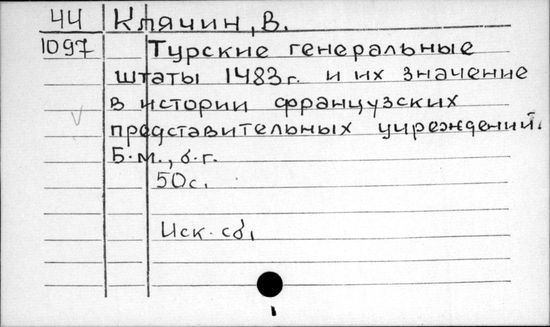 44 Клячин, В.
1097 Турские генеральные
штаты 1483г. и их значение
в истории французских
представительных учреждений.
Б.м., б.г.
50с.
Иск. сб.